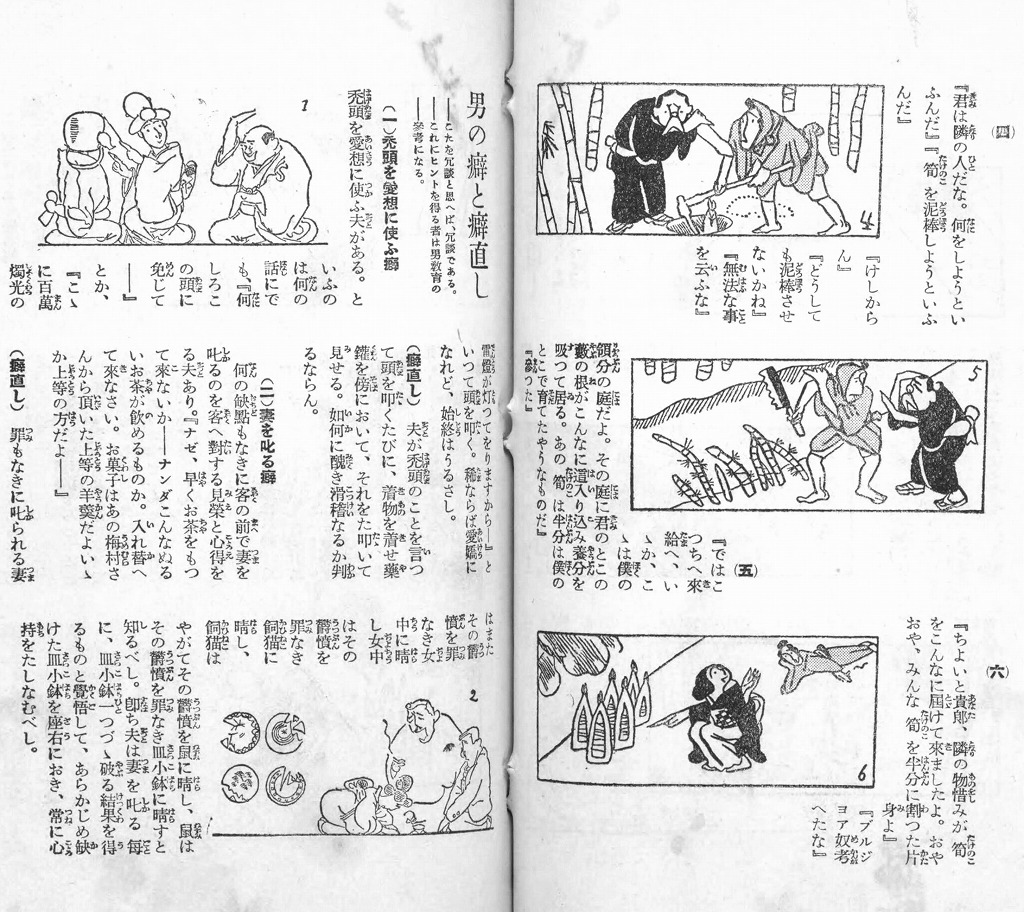 (四)
『君は隣の人だな。何をしようとい
ふんだ』『筍を泥棒しようといふ
んだ』
『けしから
ん』
『どうして
も泥棒させ
ないかね』
『無法な事
を云ふな』
4
5
(五)
『ではこ
つちへ來
給へ、い
ゝか、こ
ゝは僕の
領分の庭だよ。その庭に君のとこの
藪の根がこんなに這入り込み養分を
吸つて居る。あの筍は半分は僕の
とこで育てたやうなものだ』
『參つた』
(六)
『ちよいと貴郎、隣の物惜みが筍
をこんなに屆けて來ましたよ。おや
おや、みんな筍を半分に割つた片
身よ』
『ブルジ
ョア奴考
へたな』
6
男の癖と癖直し
――これを冗談と思へば、冗談である。
――これにヒントを得る者は男教育の
參考になる。
(一)禿頭を愛想に使ふ癖
禿頭を愛想に使ふ夫がある。と
いふの
は何の
話にで
も、『何
しろこ
の頭に
免じて
――』
とか、
『こゝ
に百萬
燭光の
1
電燈が灯つてをりますから―』と
いつて頭を叩く。稀ならば愛嬌に
なれど、始終はうるさし。
(癖直し) 夫が禿頭のことを言つ
て頭を叩くたびに、着物を着せ藥
鑵を傍において、それをたゝ叩いて
見せる。如何に醜き滑稽なるか判
るならん。
(二)妻を叱る癖
何の缺點もなきに客の前で妻を
叱るのを客へ對する見榮と心得を
る夫あり。『ナゼ、早くお茶をもつ
て來ないか――ナンダこんなぬる
いお茶が飮めるものか。入れ替へ
て來なさい。お菓子はあの梅村さ
んから頂いた上等の羊羹だよいゝ
か上等の方だよ――』
(癖直し) 罪もなきに叱られる妻
はまた
その鬱
憤を罪
なき女
中に晴
し女中
はその
鬱憤を
罪なき
飼猫に
晴し、
飼猫は
やがてその鬱憤を鼠に晴し、鼠は
その鬱憤を罪なき皿小鉢に晴すと
知るべし。卽ち夫は妻を叱る每
に、皿小鉢一つづゝ破る結果を得
るものと覺悟して、あらかじめ缺
けた皿小鉢を座右におき、常に心
持をたしなむべし。
2